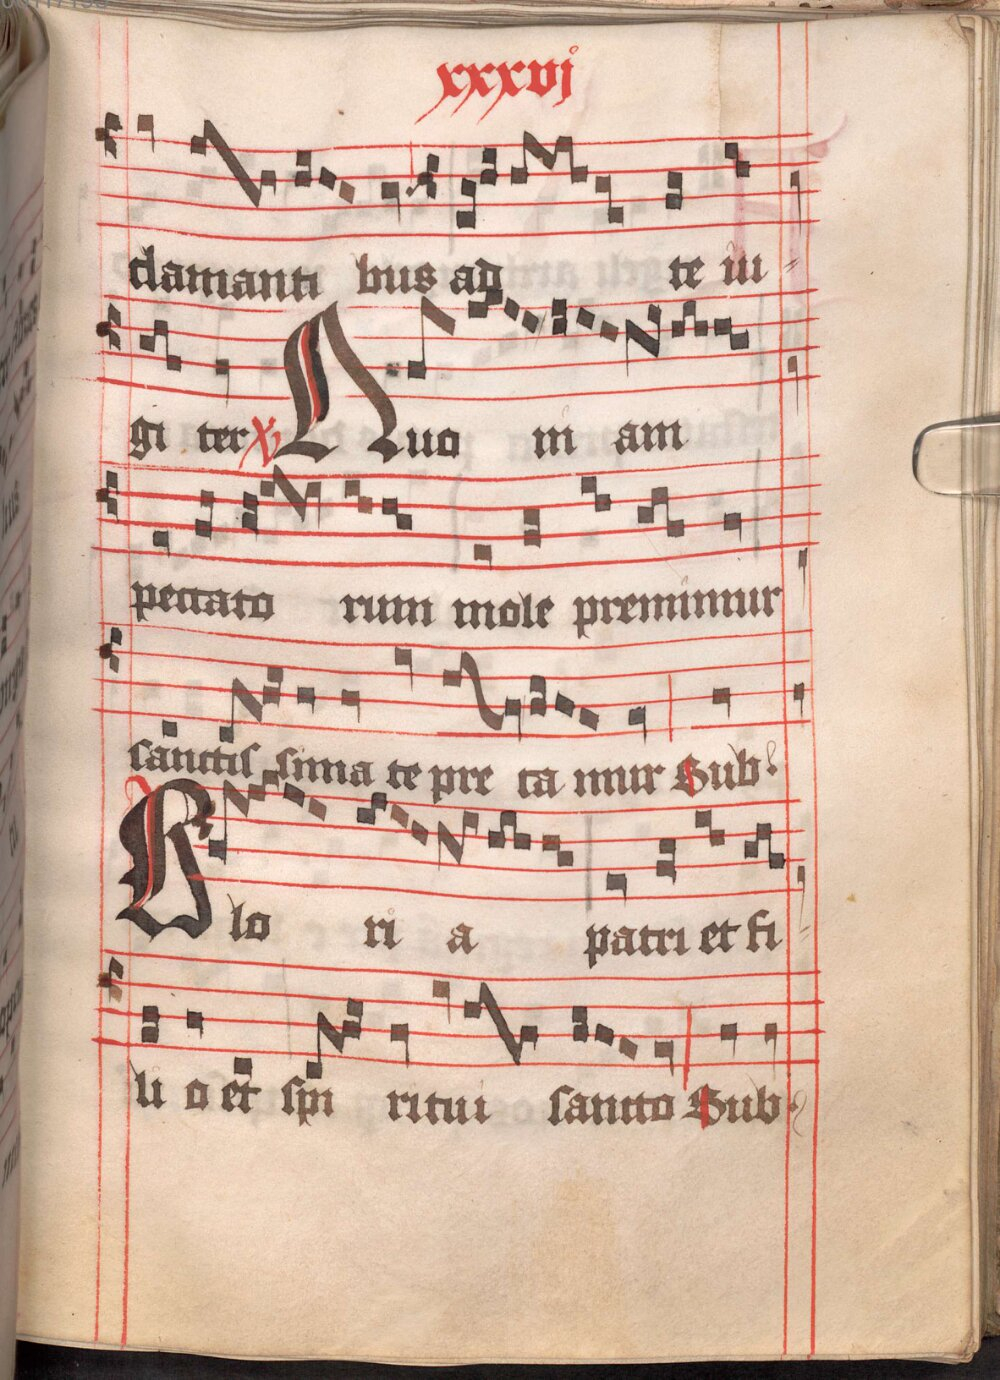 xxxvj
clamanti bus ad te iu
gi ter Quo ni am
peccato rum mole premimur
sanctis sima te pre ca mur Sub
Glo ri a patri et fi
li o et spi ritui sancto Sub